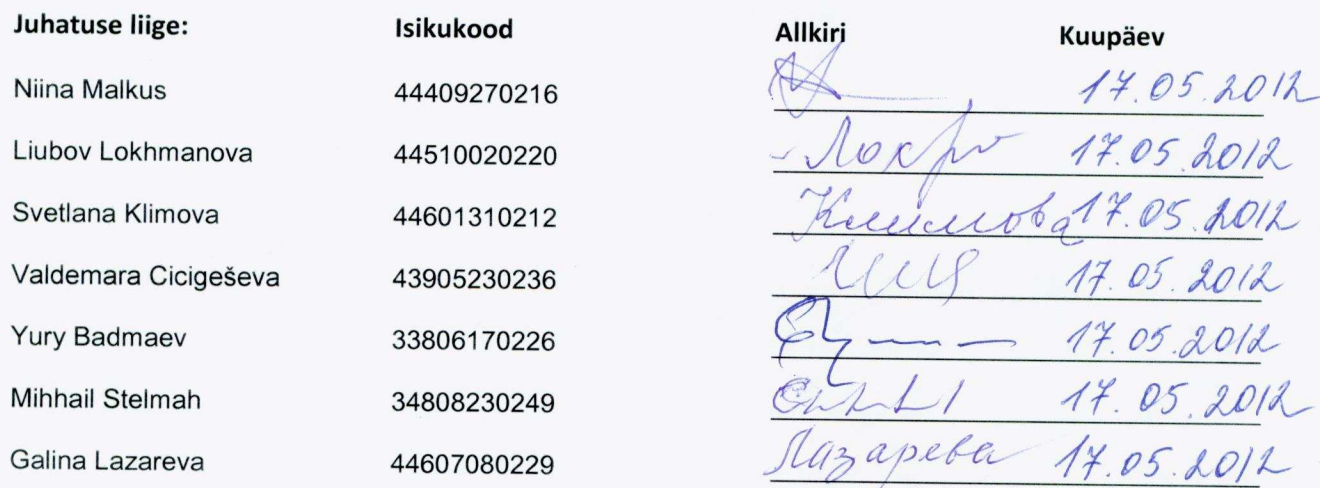 Juhatuse liige: Isikukood Allkiri Kuupäev
Niina Malkus 44409270216 17.05.2012
Liubov Lokhmanova 44510020220 17.05.2012
Svetlana Klimova 44601310212 Климова 17.05.2012
Valdemara Cicigeševa 43905230236 17.05.2012
Yury Badmaev 33806170226 17.05.2012
Mihhail Stelmah 34808230249 17.05.2012
Galina Lazareva 44607080229 Лазарева 17.05.2012